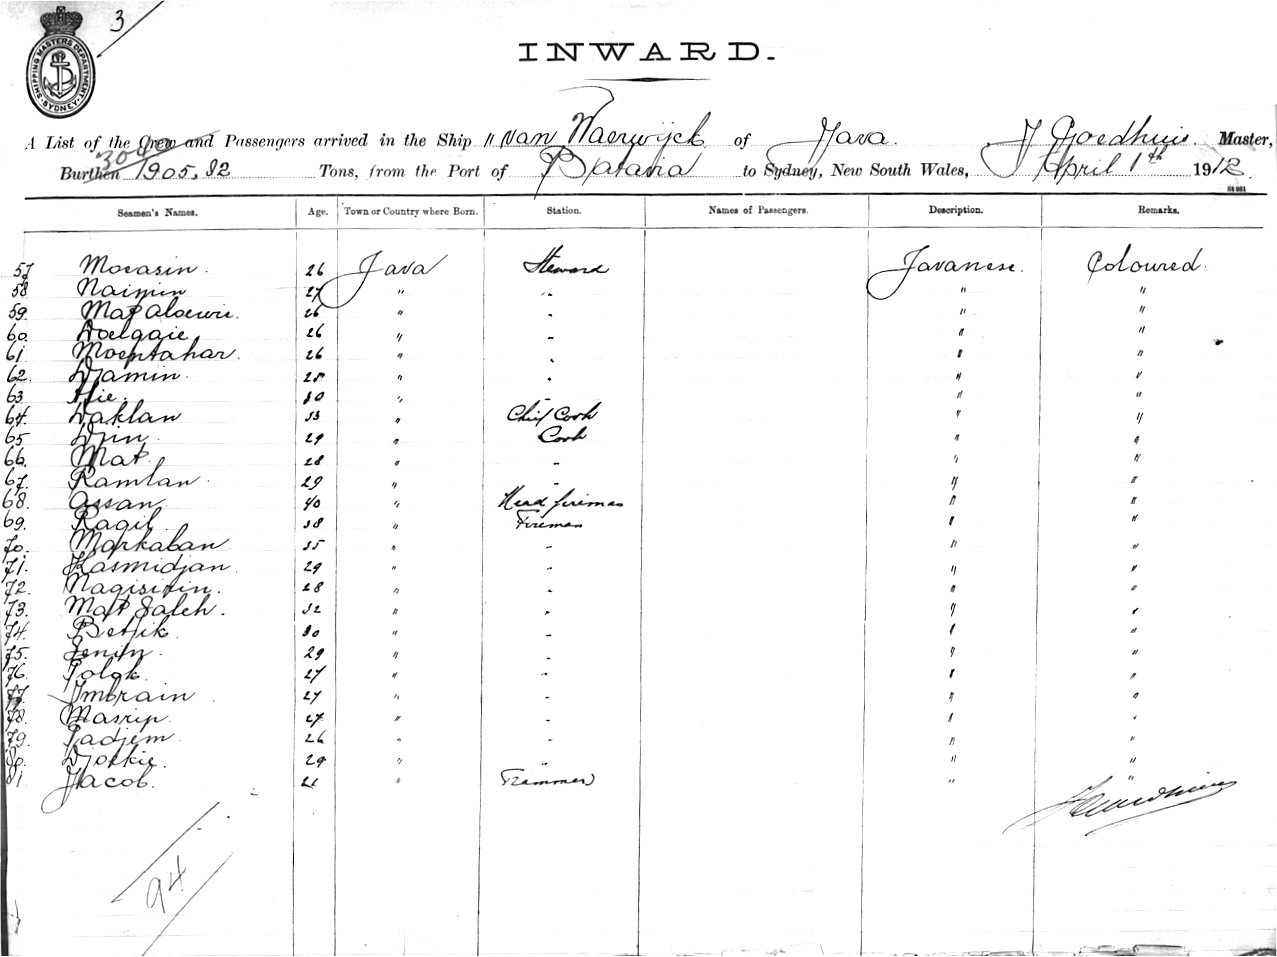 3
SHIPPING MASTERS DEPARTMENT
SYDNEY
INWARD.
A List of the Crew and Passengers arrived in the Ship "Van Waerwijck of Java. J Goedhuis Master,
3040
Burthen 1905,82 Tons, from the Port of Batavia to Sydney, New South Wales, April 1th 1912
Seamen's Names. Age. Town or Country where Born. Station. Names of Passengers. Description. Remarks.
57 Mocasin. 26 Java Steward Javanese. Coloured.
58 Naimin 27 " " " "
59 Mat aloewi. 26 " " " "
60. Doelgaie 26 " " " "
61 Moentahar. 26 " " " "
62. Djamin. 25 " " " "
63 30 " " " "
64. Daklan 33 " Chief Cook " "
65 Djin 29 " Cook " "
66. Mat. 28 " " " "
67. Ramlan. 29 " " " "
68. Assan 40 " Head fireman " "
69. Ragil 38 " Fireman " "
70. Markaban 35 " " " "
71. Kasmidjan. 29 " " " "
72. 28 " " " "
73. Mat Saleh. 32 " " " "
74. Betjik. 30 " " " "
75. 29 " " " "
76. Polok 27 " " " "
77. Imbrain 27 " " " "
78. Masrip. 27 " " " "
79. Padjem. 26 " " " "
80. Djokkie. 29 " " " "
81 Jacob. 21 " Trimmer " "
94